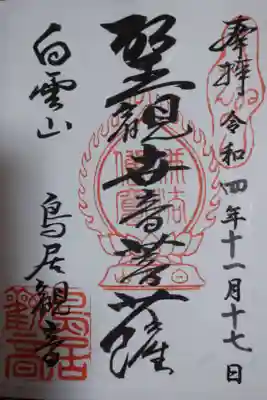 奉拝 令和四年十一月十七日
聖観世音菩薩
白雲山 鳥居観音
佛法僧寶
鳥居觀音